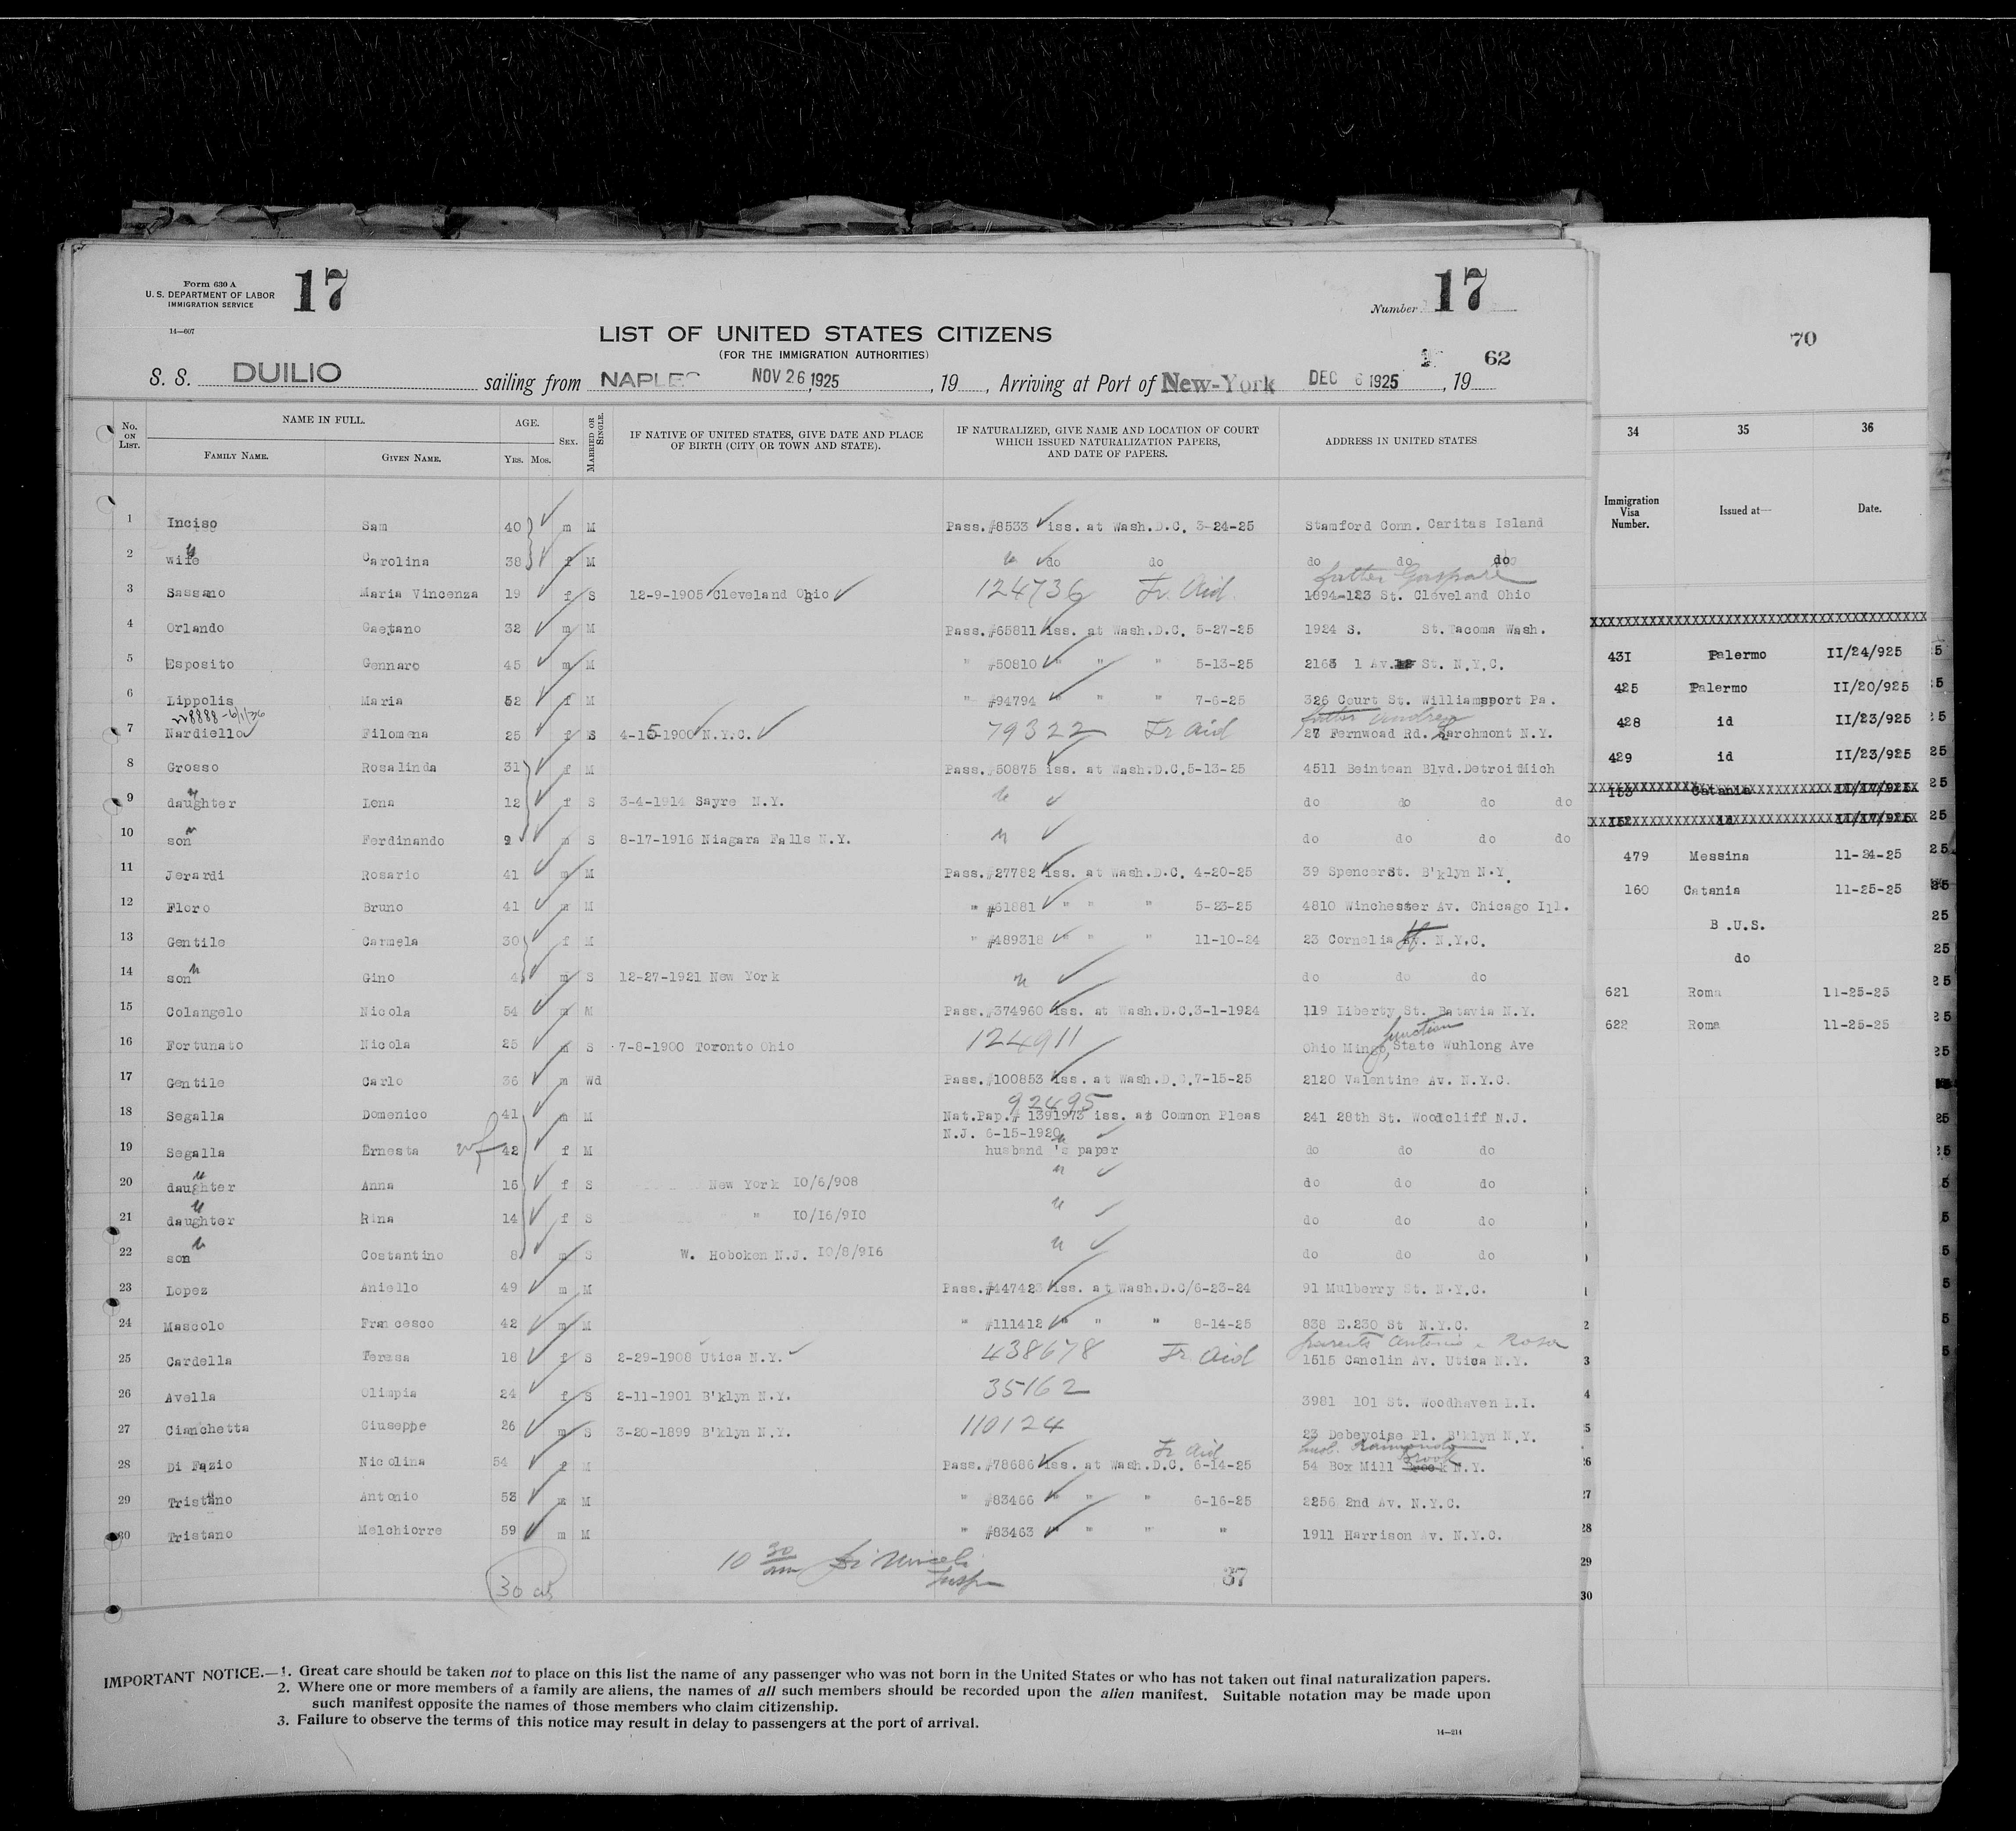 Form 630 A
U. S. DEPARTMENT OF LABOR
IMMIGRATION SERVICE
14—607
17
Number 17
LIST OF UNITED STATES CITIZENS
(FOR THE IMMIGRATION AUTHORITIES)
62
S. S. DUILIO sailing from NAPLES NOV 26 1925, 19, Arriving at Port of New-York DEC 6 1925, 19
No. ON LIST. NAME IN FULL. FAMILY NAME. GIVEN NAME. AGE. YRS. MOS. SEX. MARRIED OR SINGLE. IF NATIVE OF UNITED STATES, GIVE DATE AND PLACE OF BIRTH (CITY OR TOWN AND STATE). IF NATURALIZED, GIVE NAME AND LOCATION OF COURT WHICH ISSUED NATURALIZATION PAPERS, AND DATE OF PAPERS. ADDRESS IN UNITED STATES
1 Inciso Sam 40 m M Pass.#8533 iss. at Wash.D.C. 3-24-25 Stamford Conn. Caritas Island
2 wife " Carolina 38 f M " do do do do do
father Gaspare
3 Sassano Maria Vincenza 19 f S 12-9-1905 Cleveland Ohio 124736 Tr Aid 1894-123 St. Cleveland Ohio
4 Orlando Gaetano 32 m M Pass.#65811 iss. at Wash.D.C. 5-27-25 1924 S. St.Tacoma Wash.
5 Esposito Gennaro 45 m M " #50810 " " " 5-13-25 2163 1 Av. St. N.Y.C.
6 Lippolis Maria 52 f M " #94794 " " " 7-6-25 326 Court St. Williamsport Pa.
father Andrea
7 Nardiello Filomena 25 f S 4-15-1900 N.Y.C. 79322 Tr Aid 27 Fernwood Rd. Larchmont N.Y.
8 Grosso Rosalinda 31 f M Pass.#50875 iss. at Wash.D.C.5-13-25 4511 Beintean Blvd.Detroit Mich
9 daughter " Lena 12 f S 3-4-1914 Sayre N.Y. " do do do do
10 son " Ferdinando 9 m S 8-17-1916 Niagara Falls N.Y. " do do do do
11 Jerardi Rosario 41 m M Pass.#27782 iss. at Wash.D.C. 4-20-25 39 Spencer St. B'klyn N.Y.
12 Floro Bruno 41 m M " #61881 " " " 5-23-25 4810 Winchester Av. Chicago Ill.
13 Gentile Carmela 30 f M " #489318 " " " 11-10-24 23 Cornelia St. N.Y.C.
14 son " Gino 4 m S 12-27-1921 New York " do do do
15 Colangelo Nicola 54 m M Pass.#374960 iss. at Wash.D.C.3-1-1924 119 Liberty St. Batavia N.Y.
junction
16 Fortunato Nicola 25 m S 7-8-1900 Toronto Ohio 124911 Ohio Mingo, State Wuhlong Ave
17 Gentile Carlo 36 m Wd Pass.#100853 iss. at Wash.D.C.7-15-25 2120 Valentine Av. N.Y.C.
92495
18 Segalla Domenico 41 m M Nat.Pap.# 1391973 iss. at Common Pleas N.J. 6-15-1920 241 28th St. Woodcliff N.J.
19 Segalla Ernesta wf 42 f M husband 's paper do do do
20 daughter " Anna 16 f S New York IO/6/908 " do do do
21 daughter " Rina 14 f S " IO/16/9IO " do do do
22 son " Costantino 8 m S W. Hoboken N.J. IO/8/9I6 " do do do
23 Lopez Aniello 49 m M Pass.#447423 iss. at Wash.D.C/6-23-24 91 Mulberry St. N.Y.C.
24 Mascolo Francesco 42 m M " #111412 " " " 8-14-25 838 E.230 St N.Y.C.
parents Antonio & Rosa
25 Cardella Teresa 18 f S 2-29-1908 Utica N.Y. 438678 Tr Aid 1515 Canclin Av. Utica N.Y.
26 Avella Olimpia 24 f S 2-11-1901 B'klyn N.Y. 35162 3981 101 St. Woodhaven L.I.
27 Cianchetta Giuseppe 26 m S 3-20-1899 B'klyn N.Y. 110124 23 Debevoise Pl. B'klyn N.Y.
Tr Aid husb. Raimondo
28 Di Fazio Nicolina 54 f M Pass.#78686 iss. at Wash.D.C. 6-14-25 54 Box Mill Brook N.Y.
29 Tristano Antonio 53 m M " #83466 " " " 6-16-25 2256 2nd Av. N.Y.C.
30 Tristano Melchiorre 59 m M " #83463 " " " " 1911 Harrison Av. N.Y.C.
10 30 am
Insp
37
30
IMPORTANT NOTICE.—1. Great care should be taken not to place on this list the name of any passenger who was not born in the United States or who has not taken out final naturalization papers.
2. Where one or more members of a family are aliens, the names of all such members should be recorded upon the alien manifest. Suitable notation may be made upon
such manifest opposite the names of those members who claim citizenship.
3. Failure to observe the terms of this notice may result in delay to passengers at the port of arrival.
14—214
70
34 35 36
Immigration Visa Number. Issued at— Date.
43I Palermo II/24/925
425 Palermo II/20/925
428 id II/23/925
429 id II/23/925
I53 Catania II/I7/925
I52 id II/I7/925
479 Messina 11-24-25
160 Catania 11-25-25
B.U.S.
do
621 Roma 11-25-25
622 Roma 11-25-25